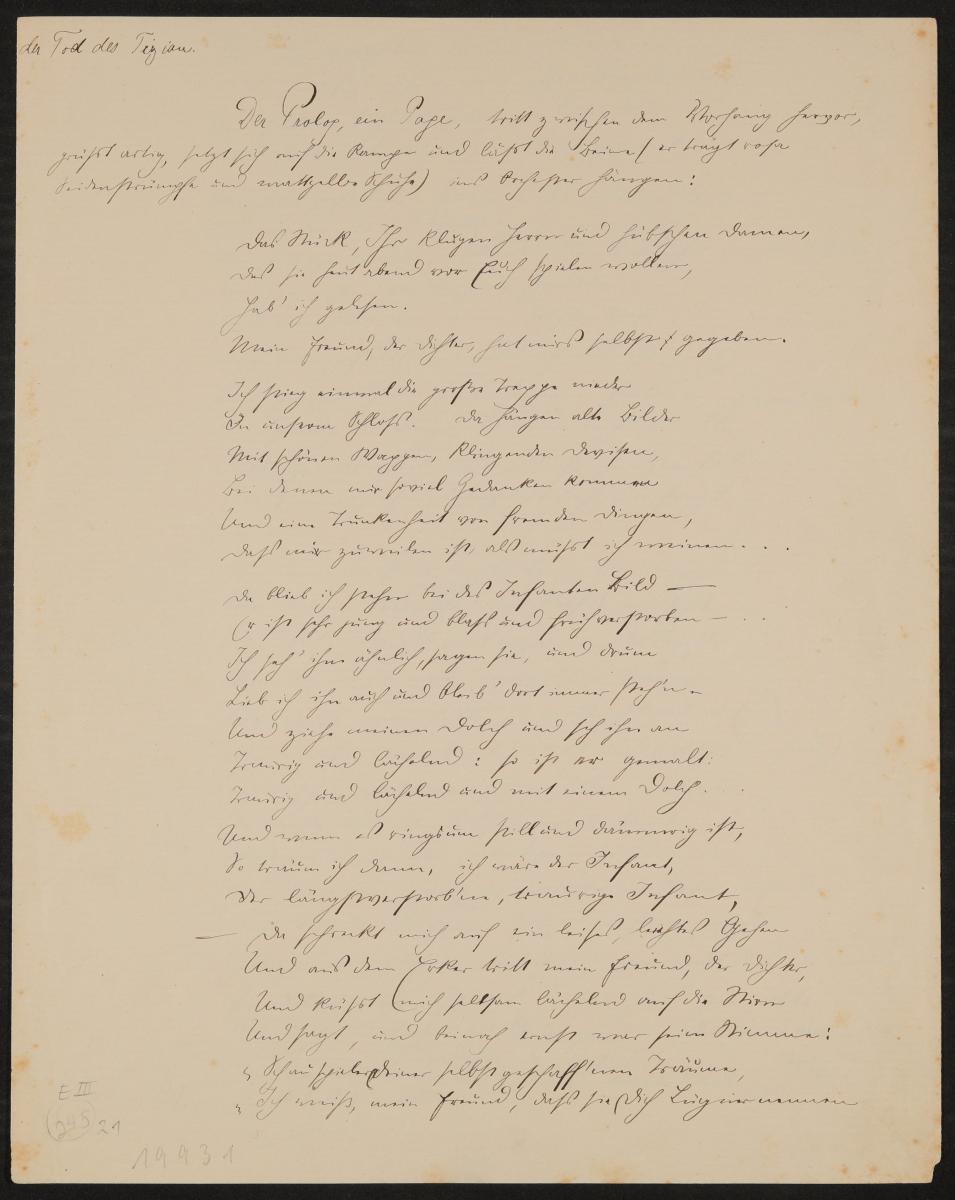 der Tod des Tizian.
Der Prolog, ein Page, tritt zwischen dem Vorhang hervor,
grüsst artig, setzt sich auf die Rampe und lässt die Beine (er trägt rosa
Seidenstrümpfe und mattgelbe Schuhe) ins Orchester hängen:
Das Stück, Ihr klugen Herren und hübschen Damen,
Das sie heut abend vor Euch spielen wollen,
Hab' ich gelesen.
Mein Freund, der Dichter, hat mirs selbst gegeben.
Ich stieg einmal die große Treppe nieder
In unserm Schloss. Da hängen alte Bilder
Mit schönen Wappen, klingenden Devisen,
Bei denen mir soviel Gedanken kommen
Und eine Trunkenheit von fremden Dingen,
Dass mir zuweilen ist, als müsst ich weinen. . .
Da blieb ich stehen bei des Infanten Bild —
Er ist sehr jung und blass und früh verstorben — . .
Ich seh' ihm ähnlich, sagen sie, und drum
Lieb ich ihn auch und bleib' dort immer steh'n
Und ziehe meinen Dolch und seh ihn an
Traurig und lächelnd: so ist er gemalt:
Traurig und lächelnd und mit einem Dolch. . .
Und wenn es ringsum still und dämmrig ist,
So träum ich dann, ich wäre der Infant,
Der längst verstorb'ne, traurige Infant,
— Da schreckt mich auf ein leises, leichtes Gehen
Und aus dem Erker tritt mein Freund, der Dichter,
Und küsst mich seltsam lächelnd auf die Stirn
Und sagt, und beinah ernst war seine Stimme:
„Schauspieler deiner selbstgeschaff'nen Träume,
„Ich weiß, mein Freund, dass sie Dich Lügner nennen
E III
245 21
19931